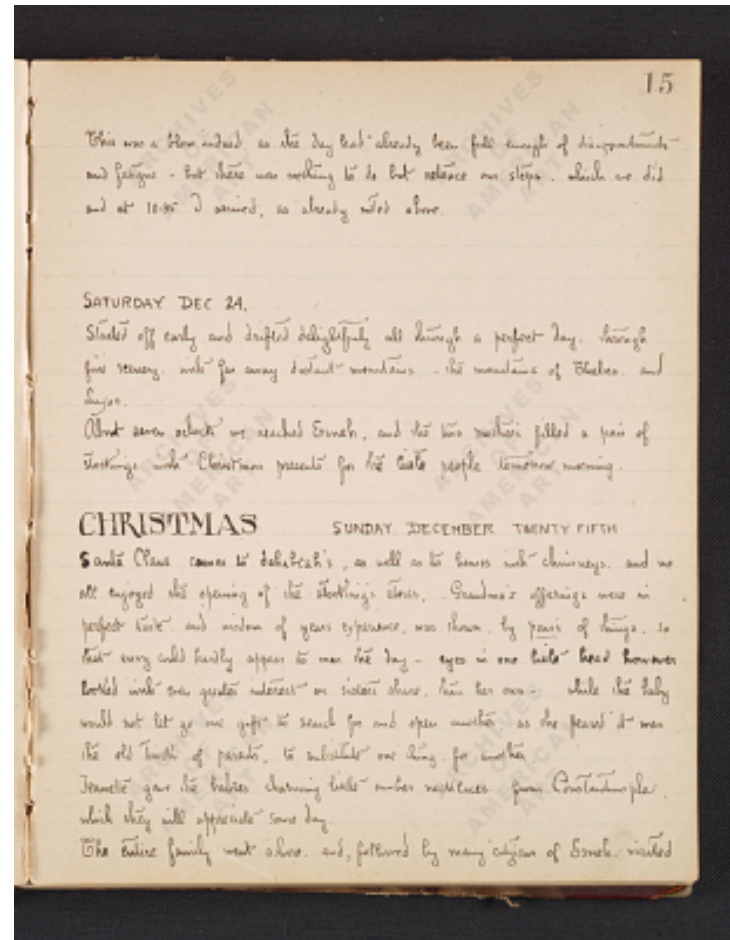 15
This was a blow indeed, as the day had already been full enough of disappointments
and fatigue - but there was nothing to do but retrace our steps, which we did
and at 10.45 I arrived, as already noted above.
SATURDAY DEC 24.
Started off early and drifted delightfully all through a perfect day, through
fine scenery, with far away distant mountains. - the mountains of Thebes. and
Luxor.
About seven oclock we reached Esneh, and the two mothers filled a pair of
stockings with Christmas presents for the little people tomorrow morning.
CHRISTMAS SUNDAY DECEMBER TWENTY FIFTH
Santa Claus comes to dahabeah's, as well as to houses with chimneys, and we
all enjoyed the opening of the stockings stores. Grandma's offerings were in
perfect taste and wisdom of years experience, was shown, by pairs of things, so
that envy could hardly appear to mar the day - eyes in one little head however
looked with even greater interest on sisters share, than her own - while the baby
would not let go one gift to search for and open another as she feared it was
the old trick of parents, to substitute one thing for another
Jeanette gave the babies charming little amber necklaces from Constantinople.
which they will appreciate some day.
The entire family went ashore. and, followed by many citizens of Esneh, visited
ARCHIVES OF AMERICAN ART